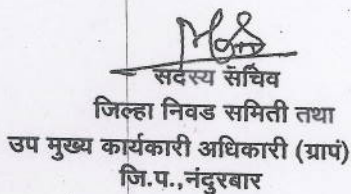 सदस्य सचिव
जिल्हा निवड समिती तथा
उप मुख्य कार्यकारी अधिकारी (ग्रापं)
जि.प.,नंदुरबार